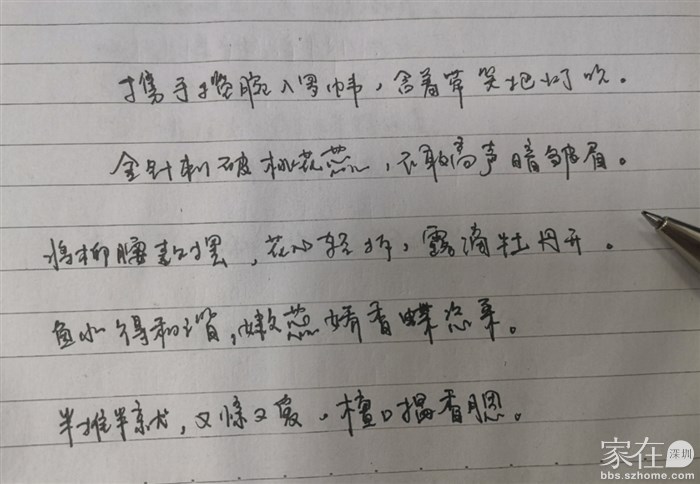 携手揽腕入罗帏，含羞带笑把灯吹。
金针刺破桃花蕊，不敢高声暗皱眉。
将柳腰款摆，花心轻拆，露滴牡丹开。
鱼水得和谐，嫩蕊娇香蝶恣采。
半推半就，又惊又爱，檀口揾香腮。
家在深圳
bbs.szhome.com